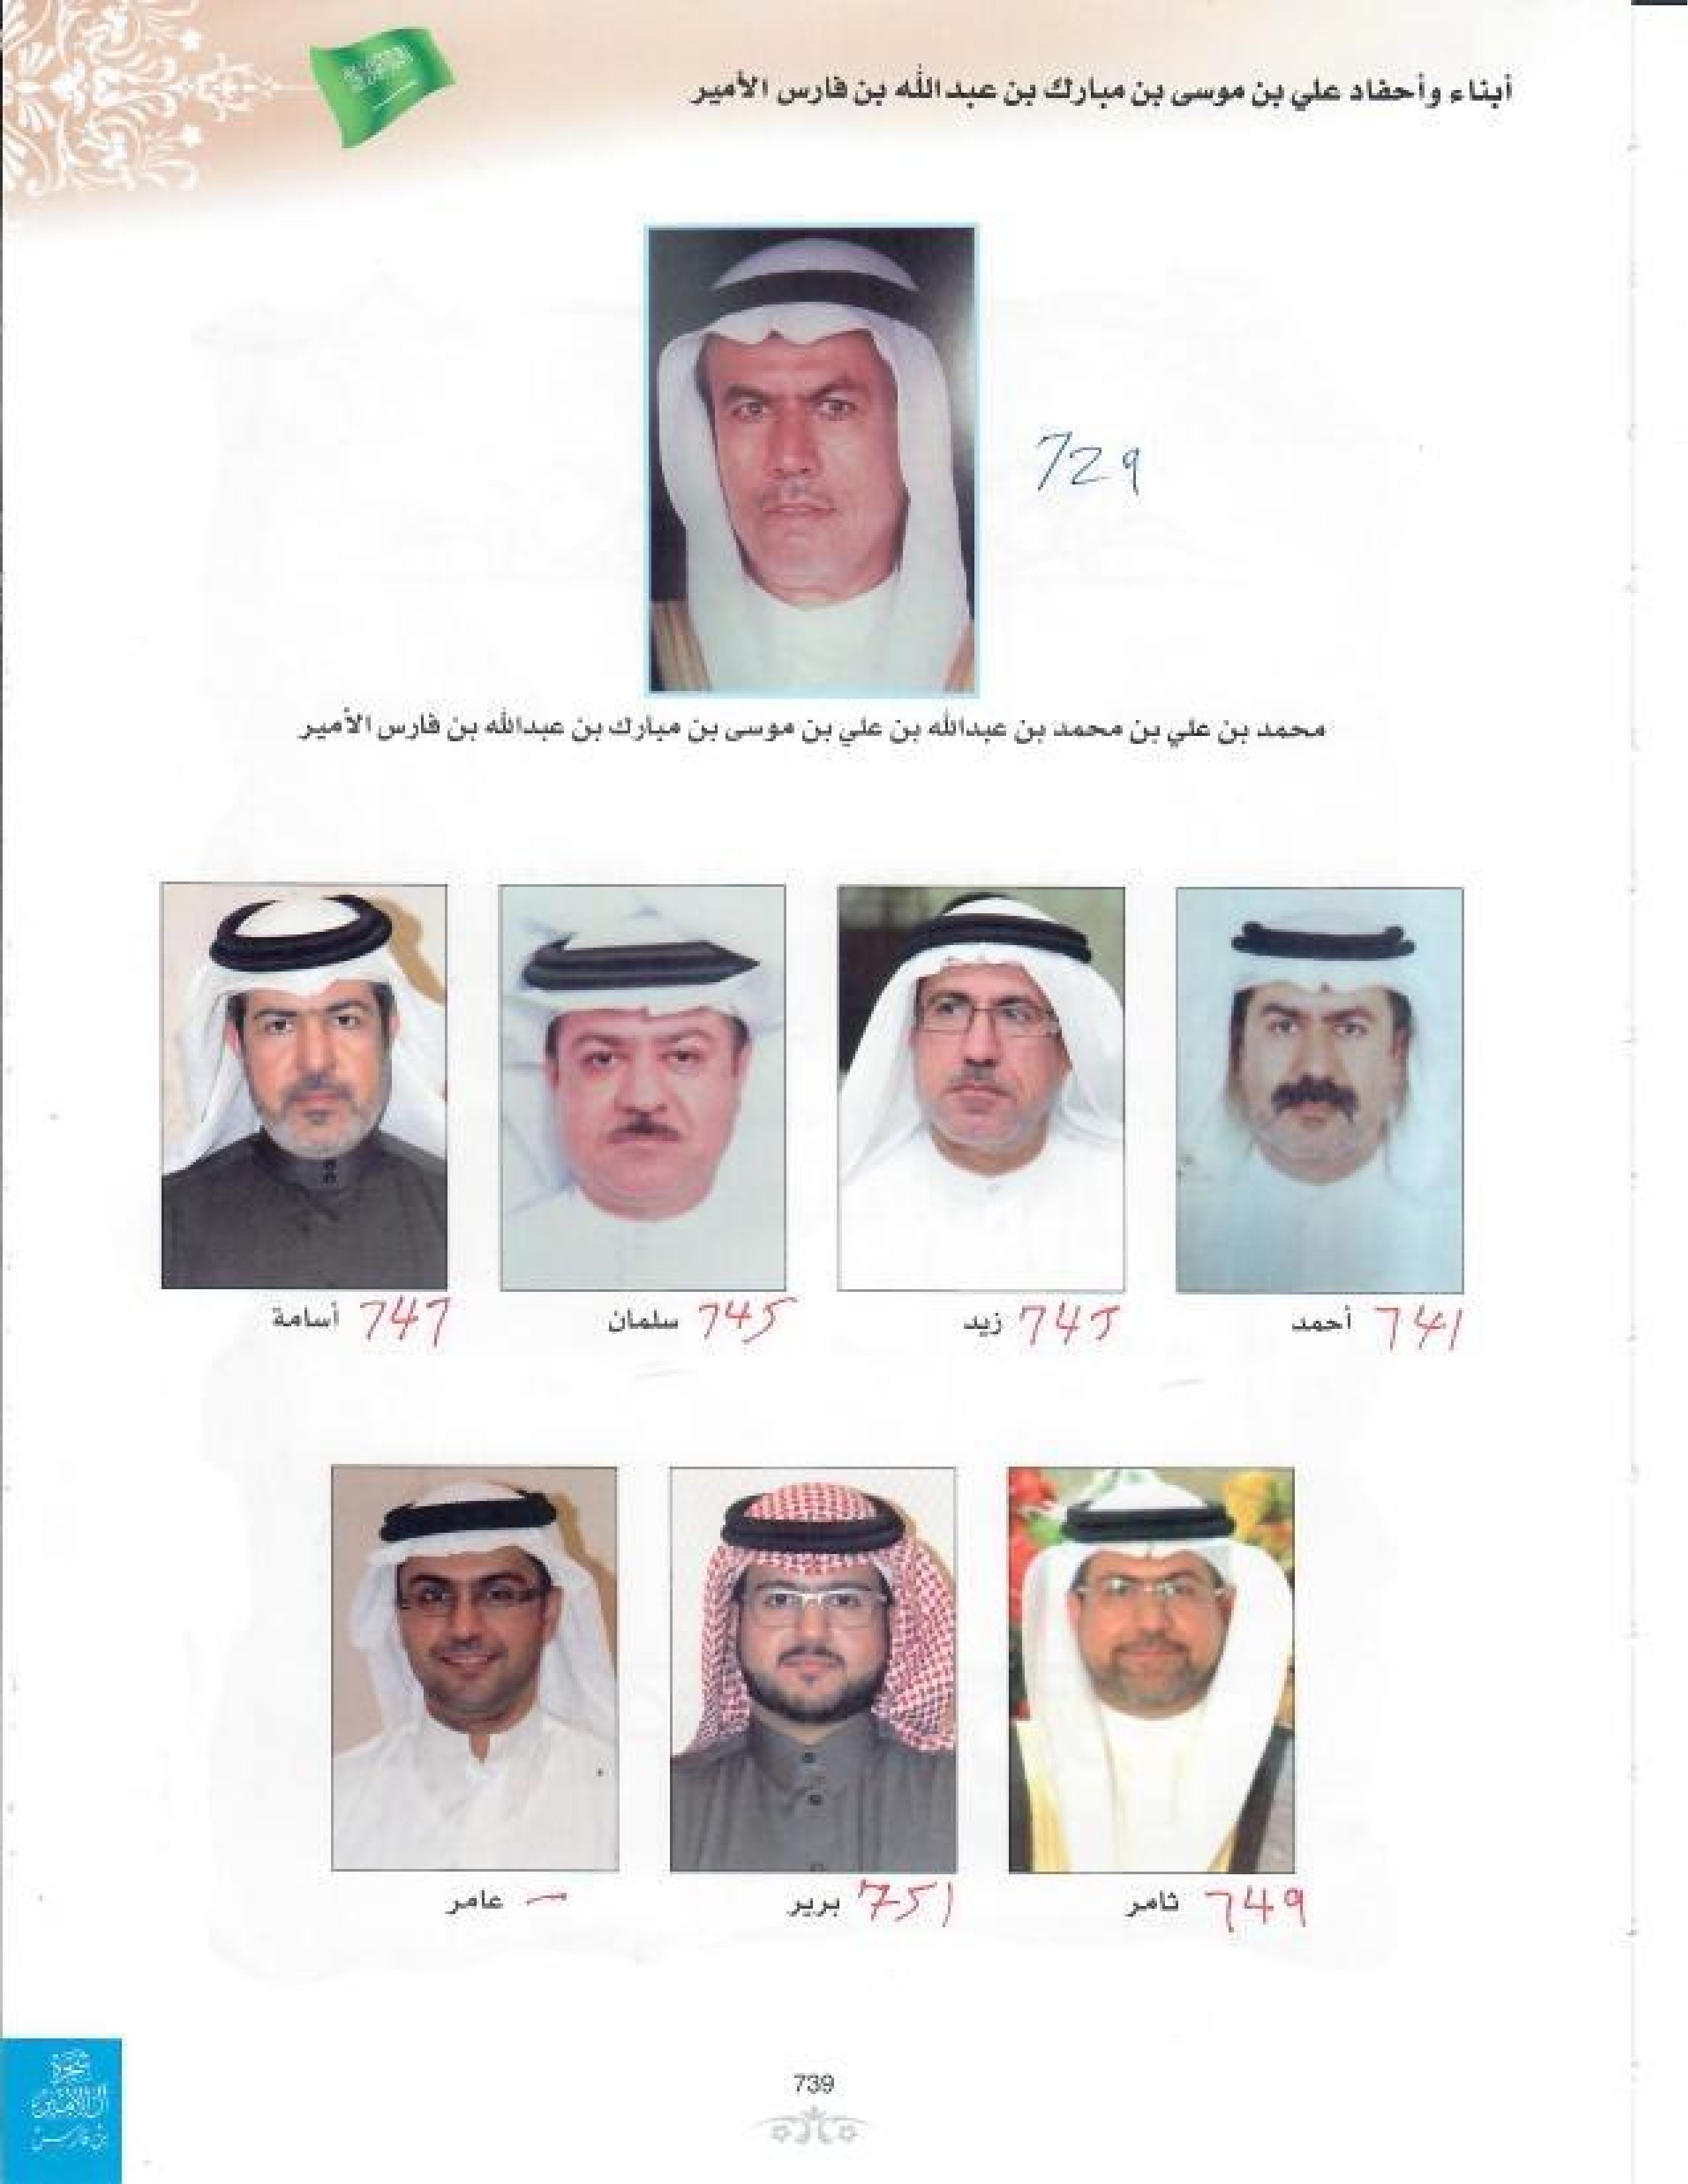 أبناء وأحفاد علي بن موسى بن مبارك بن عبدالله بن فارس الأمير
729
محمد بن علي بن محمد بن عبدالله بن علي بن موسى بن مبارك بن عبدالله بن فارس الأمير
741 أحمد
745 زيد
745 سلمان
747 أسامة
749 ثامر
751 برير
عامر
739
شجرة
آل الأمير
بن فارس